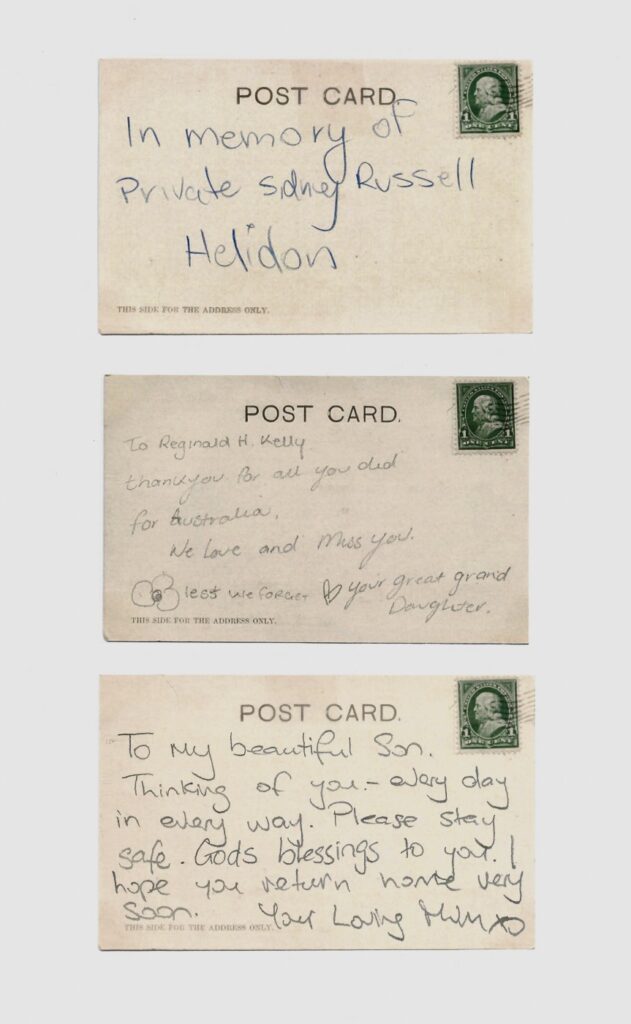 POST CARD.
1 1
ONE CENT
In memory of
Private Sidney Russell
Helidon
THIS SIDE FOR THE ADDRESS ONLY.
POST CARD.
1 1
ONE CENT
To Reginald H. Kelly
thankyou for all you did
for Australia.
We Love and Miss you.
lest we forget ♡ your great grand
Daughter.
THIS SIDE FOR THE ADDRESS ONLY.
POST CARD.
1 1
ONE CENT
To My beautiful Son.
Thinking of you – every day
in every way. Please stay
safe. Gods blessings to you. I
hope you return home very
soon. Your Loving Mum xo
THIS SIDE FOR THE ADDRESS ONLY.